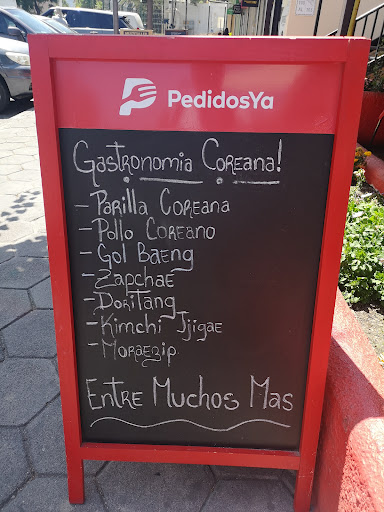 PedidosYa
Gastronomia Coreana!
- Parilla Coreana
- Pollo Coreano
- Gol Baeng
- Zapchae
- Doritang
- Kimchi Jjigae
- Moraegip
Entre Muchos Mas